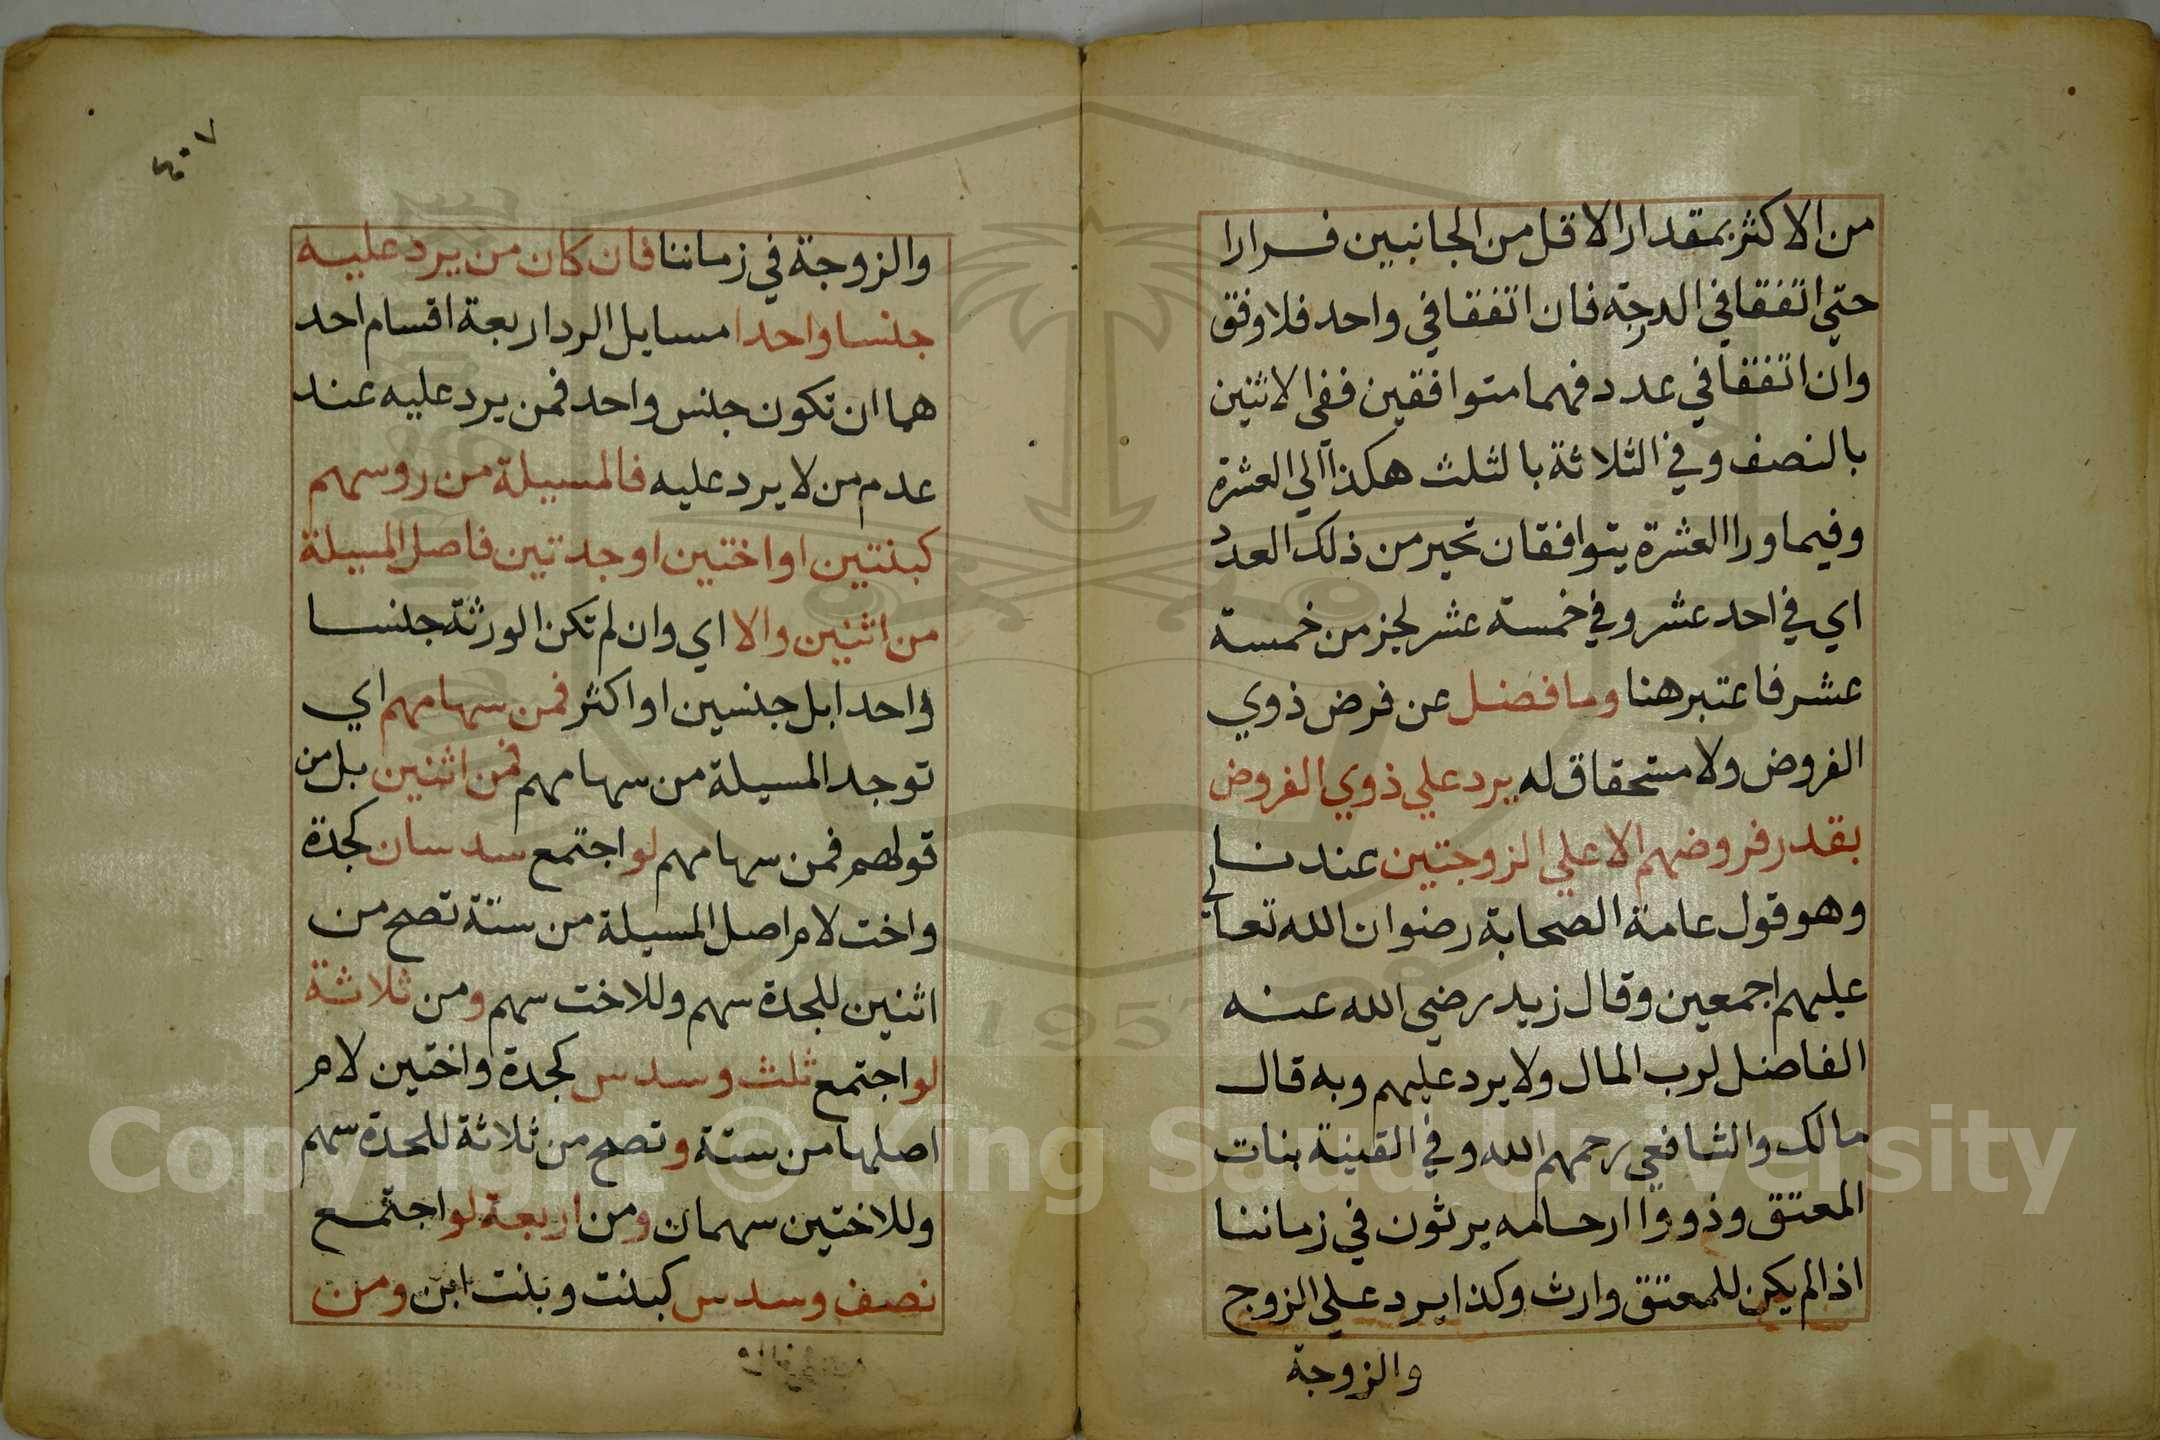 من الاكثر بمقدار الاقل من الجانبين فرارا
حتي اتفقا في الدرجة فان اتفقا في واحد فلا وفق
وان اتفقا في عدد فهما متوافقين ففي الاثنين
بالنصف وفي الثلاثة بالثلث هكذا الي العشرة
وفيما ورا العشرة يتوافقان تحير من ذلك العدد
اي في احد عشر وفي خمسة عشر لجز من خمسة
عشر فاعتبر هنا وما فضل عن فرض ذوي
الفروض ولا مستحقاق له يرد علي ذوي الفروض
بقدر فروضهم الا علي الزوجتين عندنا
وهو قول عامة الصحابة رضوان الله تعالي
عليهم اجمعين وقال زيد رضي الله عنه
الفاضل لرب المال ولا يرد عليهم وبه قال
مالك والشافعي رحمهم الله وفي القنية بنات
المعتق وذووا ارحامه يرثون في زماننا
اذا لم يكن للمعتق وارث وكذا يرد علي الزوج
والزوجة
٤٠٧
والزوجة في زماننا فان كان من يرد عليه
جنسا واحدا مسايل الرد اربعة اقسام احد
هما ان تكون جنس واحد فمن يرد عليه عند
عدم من لا يرد عليه فالمسيلة من روسهم
كبنتين او اختين او جدتين فاصل المسيلة
من اثنين والا اي وان لم تكن الورثة جنسا
واحدا بل جنسين او اكثر فمن سهامهم اي
توجد المسيلة من سهامهم فمن اثنين بل من
قولهم فمن سهامهم لو اجتمع سدسان كجدة
واخت لام اصل المسيلة من ستة تصح من
اثنين للجدة سهم وللاخت سهم ومن ثلاثة
لو اجتمع ثلث وسدس كجدة واختين لام
اصلها من ستة وتصح من ثلاثة للجدة سهم
وللاختين سهمان ومن اربعة لو اجتمع
نصف وسدس كبنت وبنت ابن ومن
1957
Copyright © King Saud University